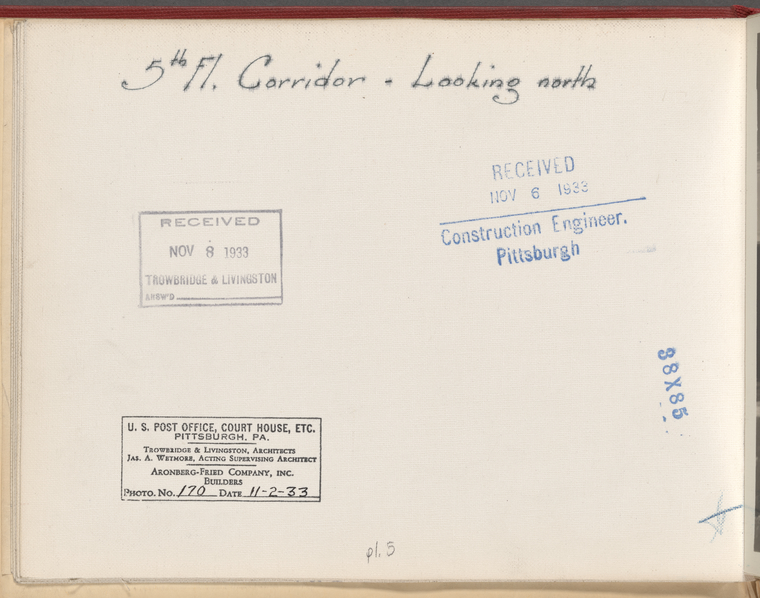 5th Fl. Corridor - Looking north
RECEIVED
NOV 6 1933
Construction Engineer.
Pittsburgh
RECEIVED
NOV 8 1933
TROWBRIDGE & LIVINGSTON
ANSW'D
88X85
U. S. POST OFFICE, COURT HOUSE, ETC.
PITTSBURGH, PA.
TROWBRIDGE & LIVINGSTON, ARCHITECTS
JAS. A. WETMORE, ACTING SUPERVISING ARCHITECT
ARONBERG-FRIED COMPANY, INC.
BUILDERS
PHOTO. NO. 170 DATE 11-2-33
pl. 5